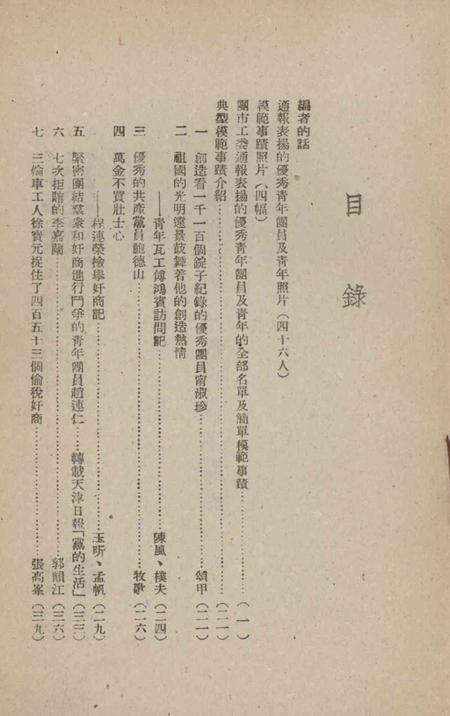 目錄
編者的話
通報表揚的優秀青年團員及青年照片（四十六人）
模範事蹟照片（四幅）
團市工委通報表揚的優秀青年團員及青年的全部名單及簡單模範事蹟……（一）
典型模範事蹟介紹……（二一）
一　創造看一千一百個錠子紀錄的優秀團員甯淑珍……頌甲（二一）
二　祖國的光明遠景鼓舞着他的創造熱情
——青年瓦工傅鴻賓訪問記……陳風、樸夫（二四）
三　優秀的共產黨員鮑德山……牧歌（二六）
四　萬金不買壯士心
——程連榮檢舉奸商記……玉昕、孟帆（二九）
五　緊密團結羣衆和奸商進行鬥爭的青年團員趙連仁……轉載天津日報「黨的生活」（三三）
六　七次拒賄的李嘉蘭……郭韻江（三六）
七　三輪車工人徐寶元捉住了四百五十三個偷稅奸商……張高峯（三九）